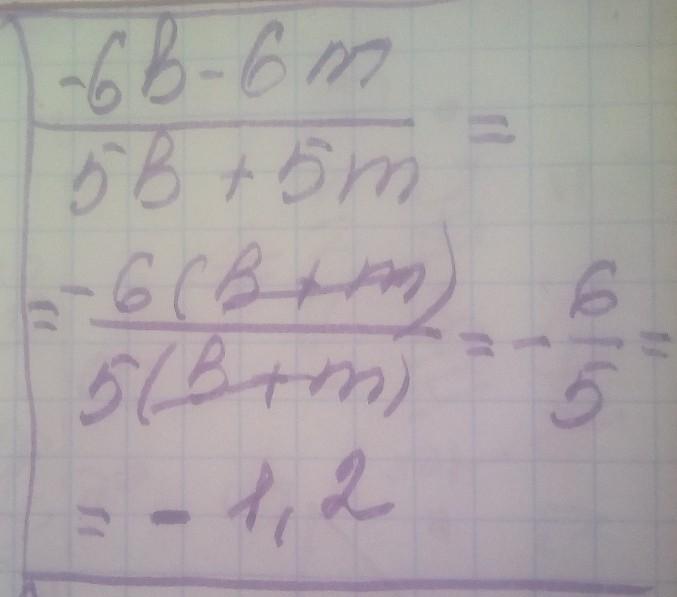 -6b - 6m
5b + 5m =
= -6(b+m)
5(b+m) = - 6/5 =
= - 1,2